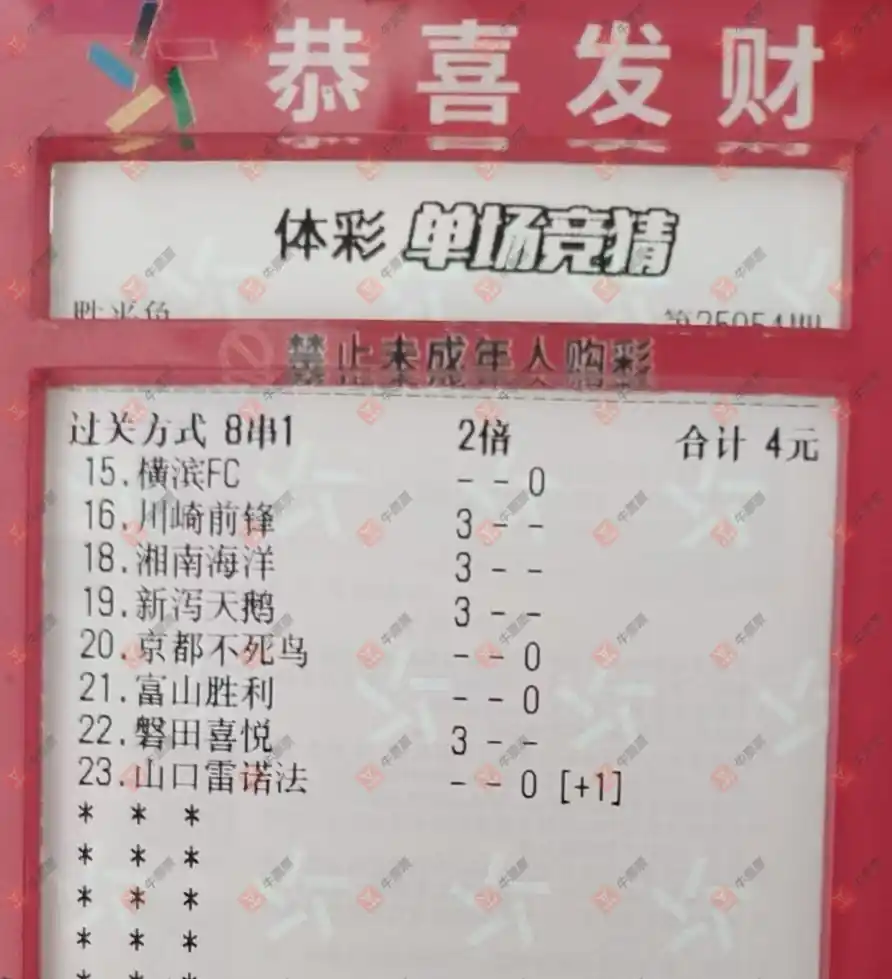 恭喜发财
体彩 单场竞猜
胜平负 第25054期
禁止未成年人购彩
过关方式 8串1 2倍 合计 4元
15.横滨FC - - 0
16.川崎前锋 3 - -
18.湘南海洋 3 - -
19.新泻天鹅 3 - -
20.京都不死鸟 - - 0
21.富山胜利 - - 0
22.磐田喜悦 3 - -
23.山口雷诺法 - - 0 [+1]
* * *
* * *
* * *
* * *
* * *